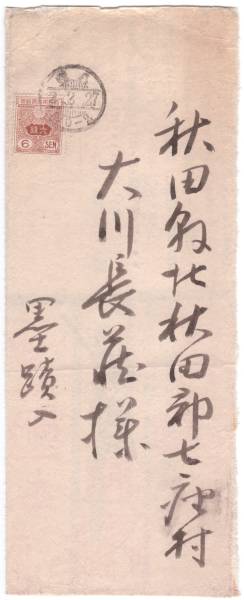 秋田県北秋田郡七座村
大川長蔵様
墨蹟入
6 SEN